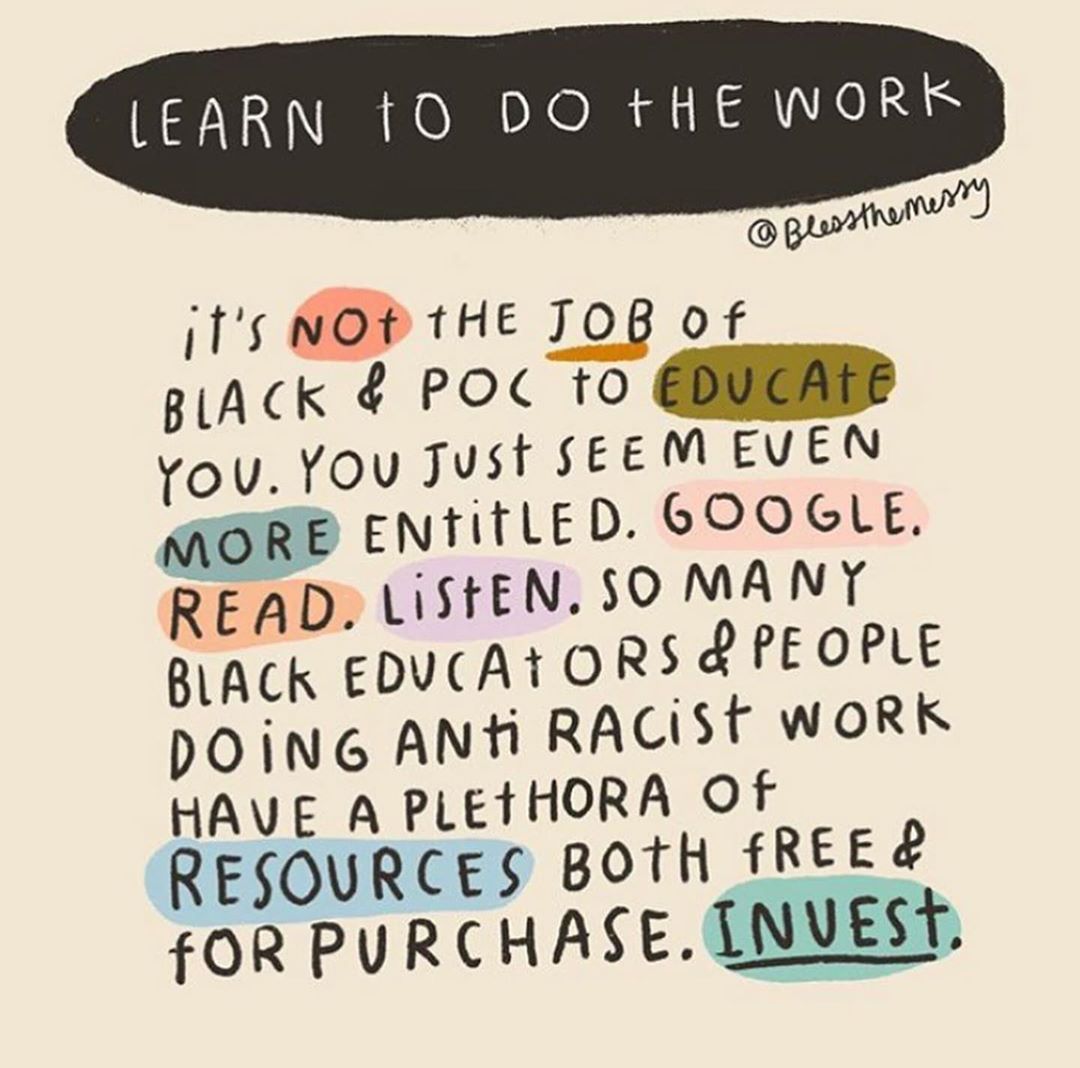 LEARN TO DO THE WORK
@Blessthemessy
it's NOT THE JOB OF
BLACK & POC TO EDUCATE
YOU. YOU JUST SEEM EVEN
MORE ENTITLED. GOOGLE.
READ. LISTEN. SO MANY
BLACK EDUCATORS & PEOPLE
DOING ANTI RACIST WORK
HAVE A PLETHORA OF
RESOURCES BOTH FREE &
FOR PURCHASE. INVEST.